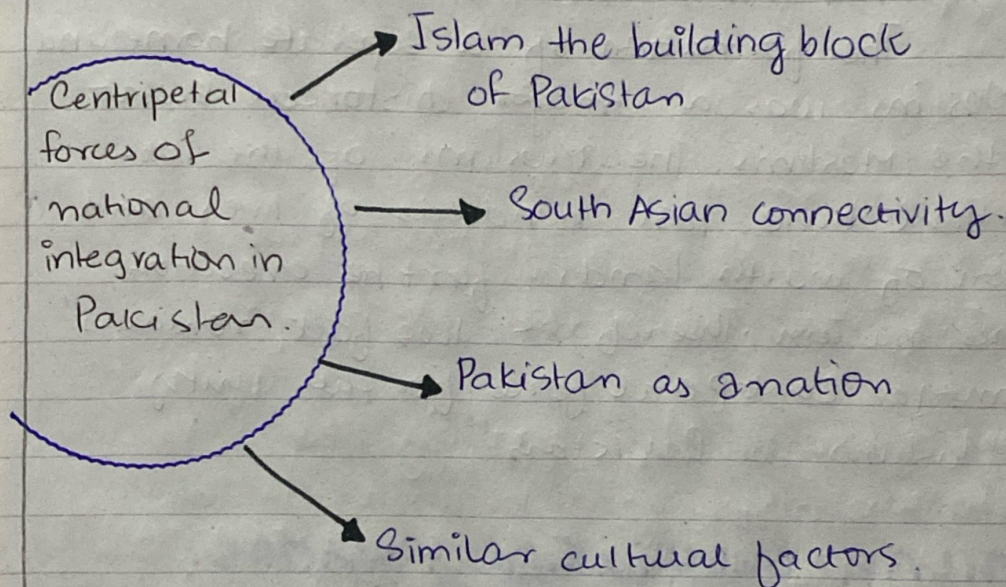 Centripetal
forces of
national
integration in
Pakistan.
Islam the building block
of Pakistan
South Asian connectivity.
Pakistan as a nation
Similar cultural factors.